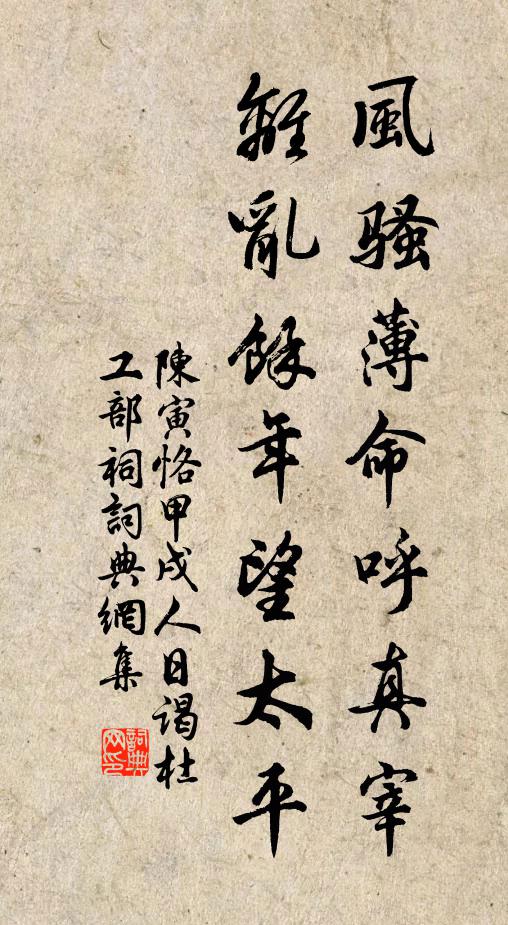 風騷薄命呼真宰
離亂餘年望太平
陳寅恪甲戌人日謁杜
工部祠詞典網集
詞典网印